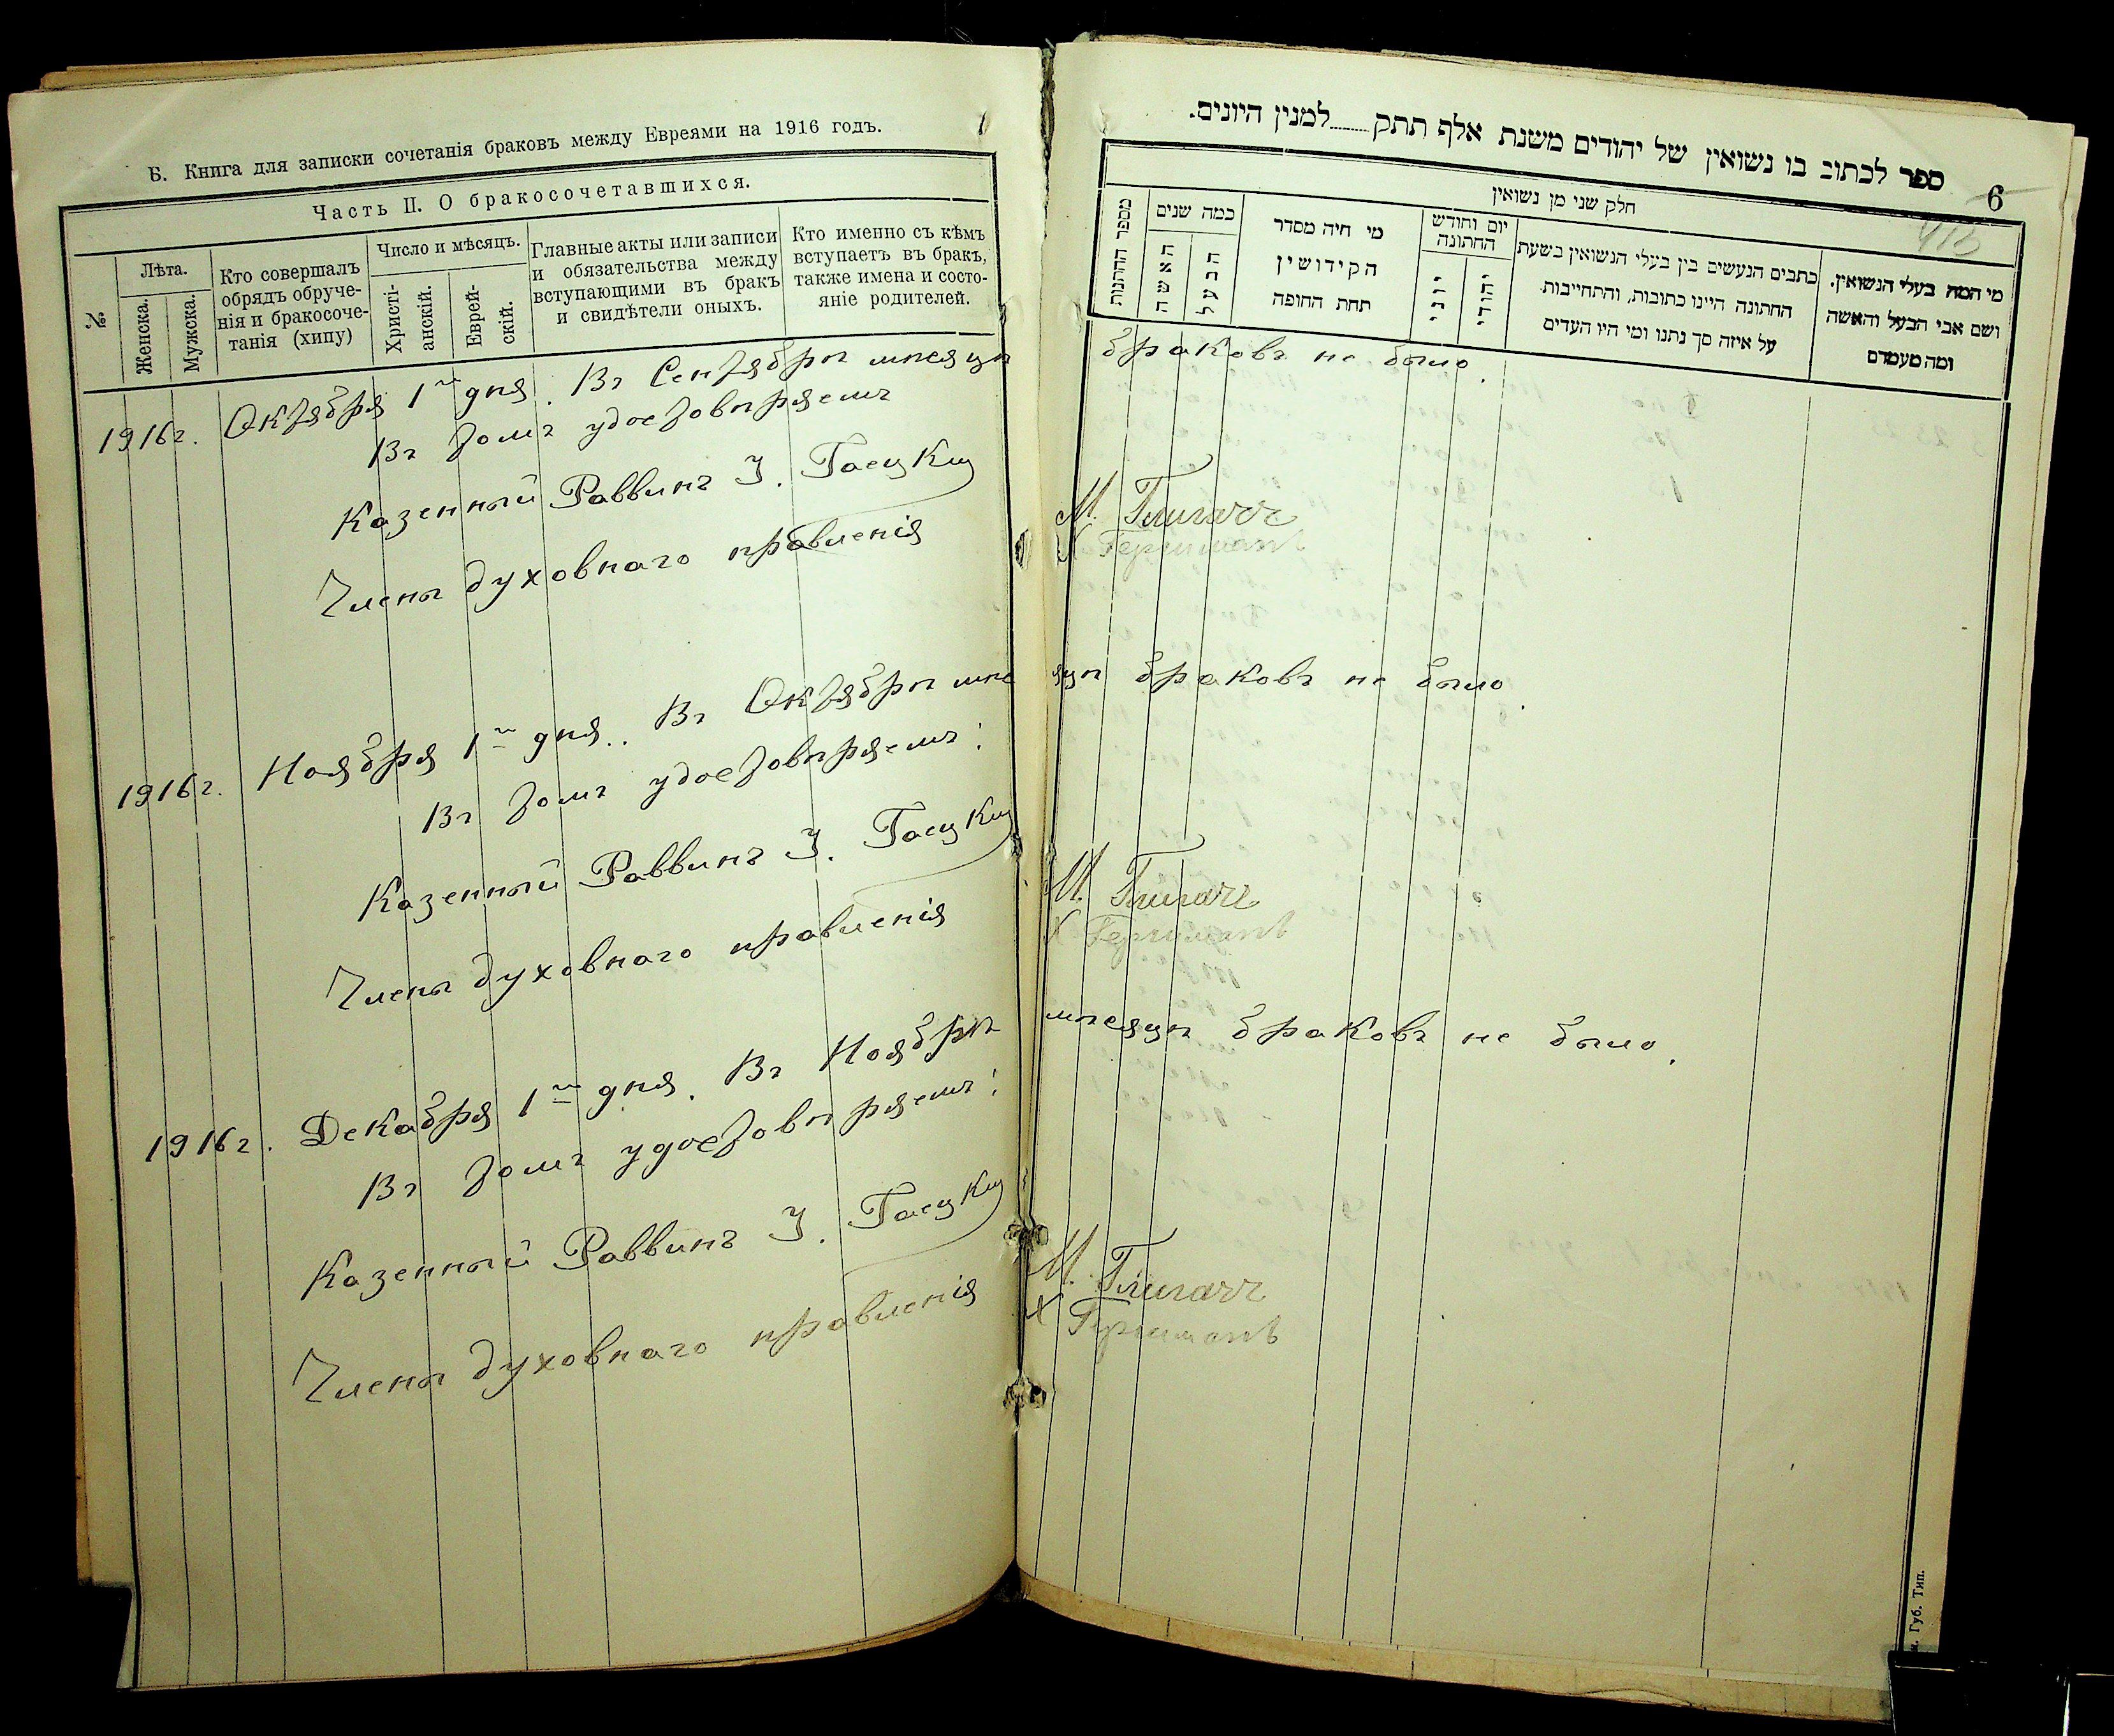 Б. Книга для записки сочетанія браковъ между Евреями на 1916 годъ.
Часть II. О бракосочетавшихся.
№
Лѣта.
Женска.
Мужска.
Кто совершалъ
обрядъ обруче-
нія и бракосоче-
танія (хипу)
Число и мѣсяцъ.
Христі-
анскій.
Еврей-
скій.
Главные акты или записи
и обязательства между
вступающими въ бракъ
и свидѣтели оныхъ.
Кто именно съ кѣмъ
вступаетъ въ бракъ,
также имена и состо-
яніе родителей.
ספר לכתוב בו נשואין של יהודים משנת אלף תתק......למנין היונים.
6
חלק שני מן נשואין
מספר החתונות
כמה שנים
האשה
הבעל
מי חיה מסדר
הקידושין
תחת החופה
יום וחודש
החתונה
יוני
יהודי
כתבים הנעשים בין בעלי הנשואין בשעת
החתונה היינו כתובות, והתחייבות
על איזה סך נתנו ומי היו העדים
מי המה בעלי הנשואין.
ושם אבי הבעל והאשה
ומה מעמדם
1916 г. Октября 1го дня. Въ Сентябрѣ мѣсяцѣ браковъ не было.
Въ томъ удостовѣряемъ
Казенный Раввинъ
Члены духовнаго правленія
1916 г. Ноября 1го дня.. Въ Октябрѣ мѣсяцѣ браковъ не было.
Въ томъ удостовѣряемъ:
Казенный Раввинъ
Члены духовнаго правленія
1916 г. Декабря 1го дня. Въ Ноябрѣ мѣсяцѣ браковъ не было.
Въ томъ удостовѣряемъ:
Казенный Раввинъ
Члены духовнаго правленія
Губ. Тип.